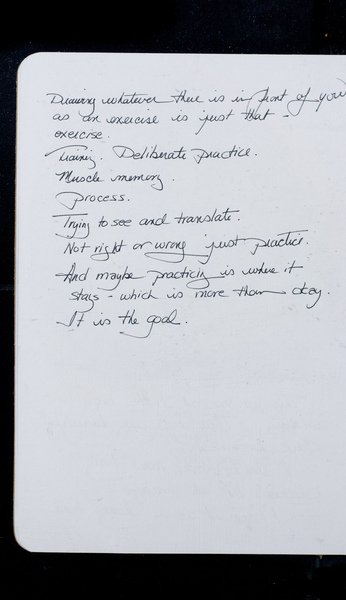 Drawing whatever there is in front of you
as an exercise is just that -
exercise.
Training. Deliberate practice.
Muscle memory.
Process.
Trying to see and translate.
Not right or wrong just practice.
And maybe practicing is where it
stays - which is more than okay.
It is the goal.